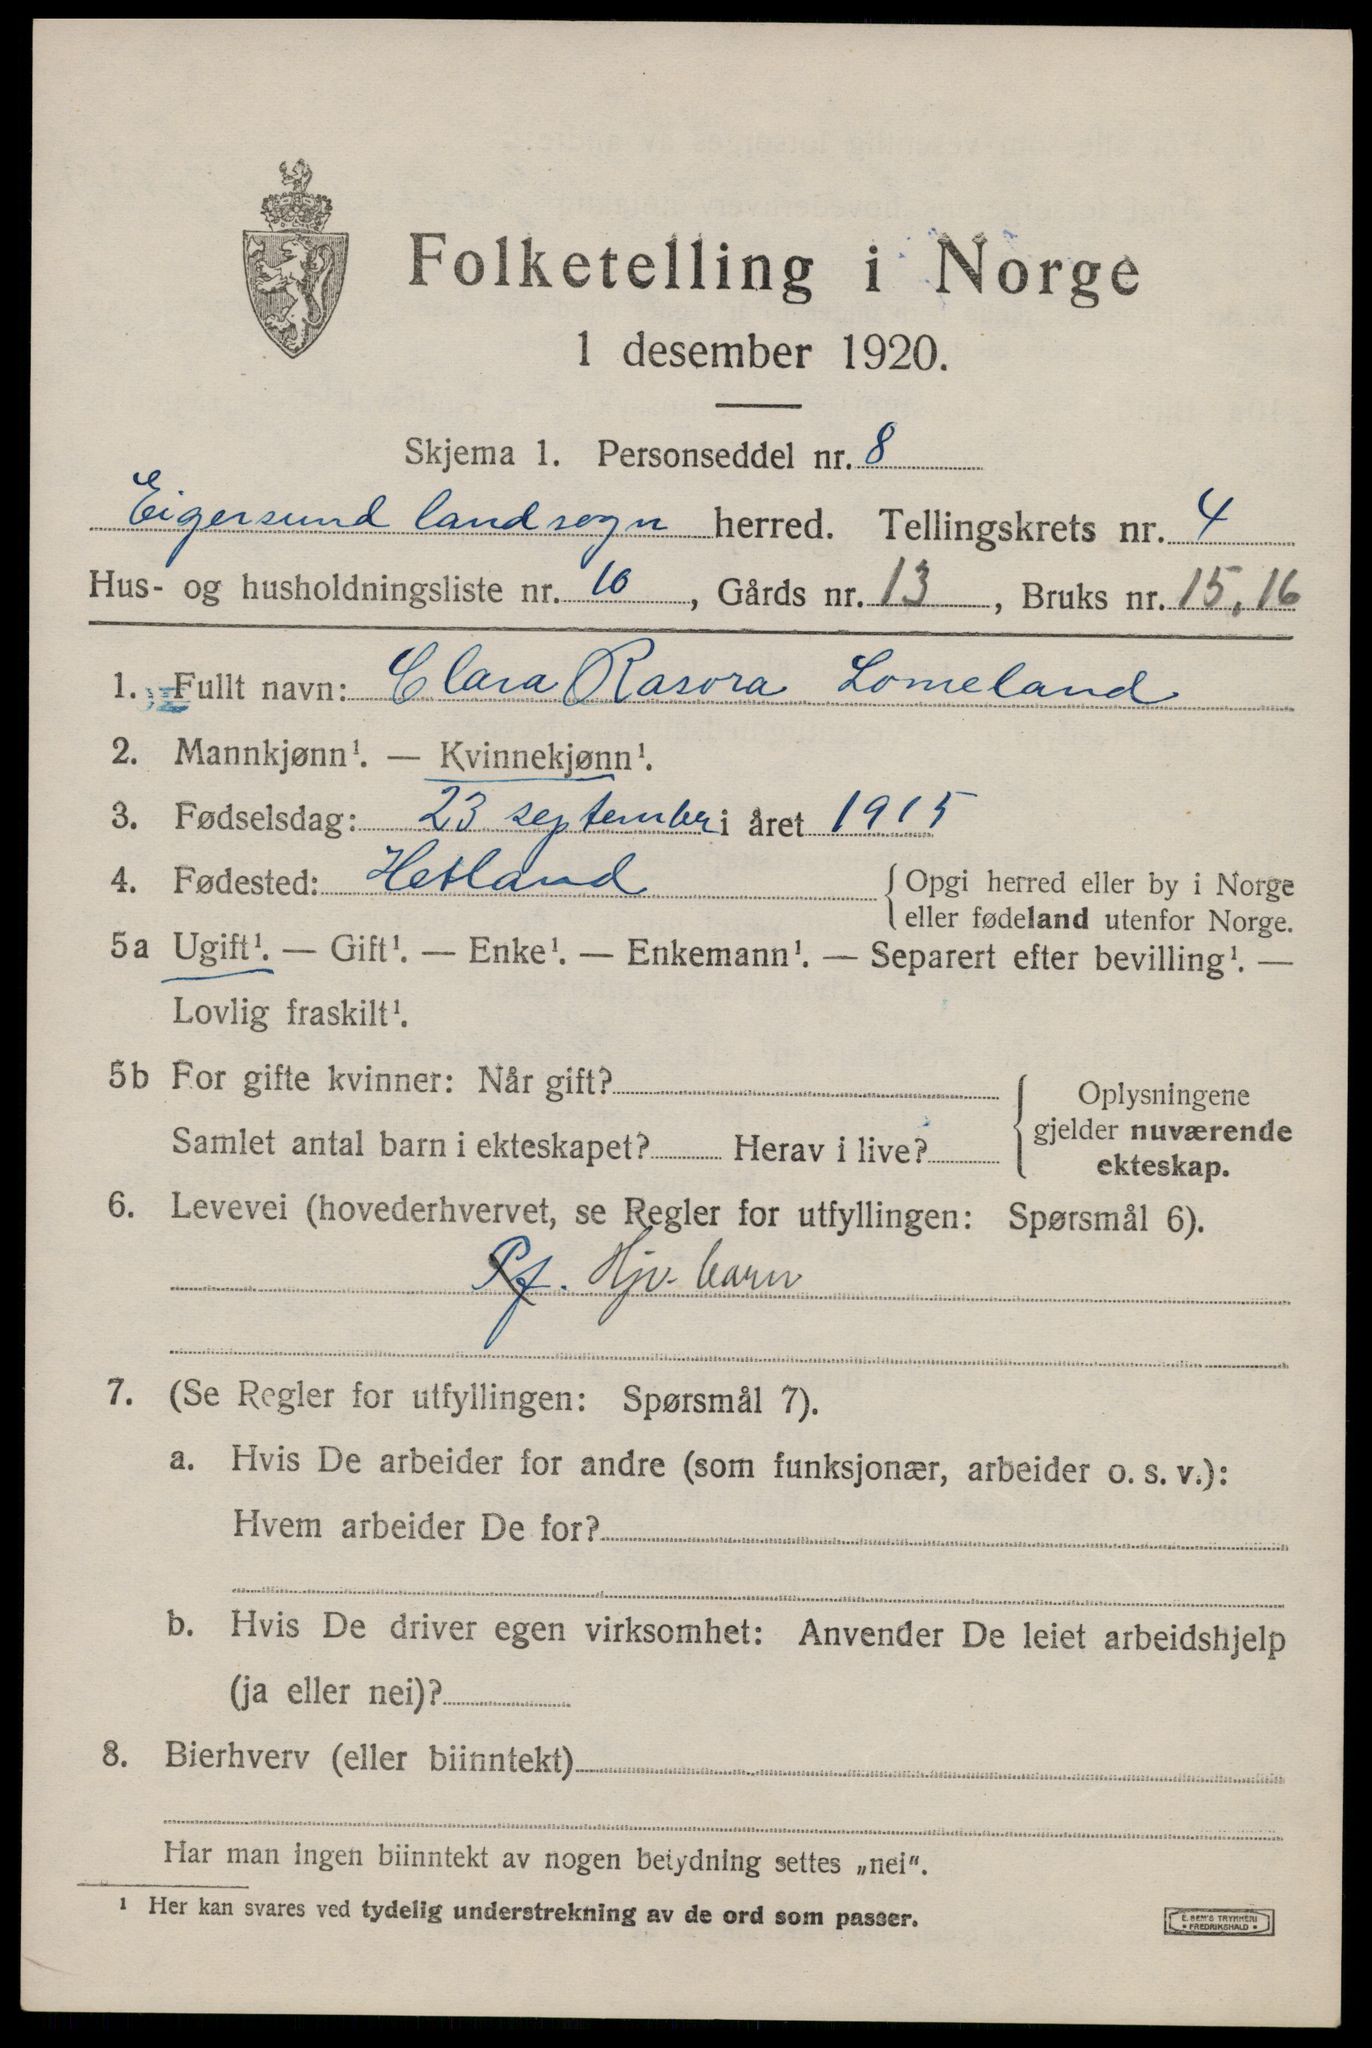 Folketelling i Norge
1 desember 1920.
Skjema 1. Personseddel nr. 8
Eigersund landsogn herred. Tellingskrets nr. 4
Hus- og husholdningsliste nr. 10, Gårds nr. 13, Bruks nr. 15, 16
1. Fullt navn: Clara Rasora Lomeland
2. Mannkjønn¹. — Kvinnekjønn¹.
3. Fødselsdag: 23 september i året 1915
4. Fødested: Hetland { Opgi herred eller by i Norge
eller fødeland utenfor Norge.
5a Ugift¹. — Gift¹. — Enke¹. — Enkemann¹. — Separert efter bevilling¹. —
Lovlig fraskilt¹.
5b For gifte kvinner: Når gift?
Samlet antal barn i ekteskapet? Herav i live?
{ Oplysningene
gjelder nuværende
ekteskap.
6. Levevei (hovederhvervet, se Regler for utfyllingen: Spørsmål 6).
Hjv. barn
7. (Se Regler for utfyllingen: Spørsmål 7).
a. Hvis De arbeider for andre (som funksjonær, arbeider o. s. v.):
Hvem arbeider De for?
b. Hvis De driver egen virksomhet: Anvender De leiet arbeidshjelp
(ja eller nei)?
8. Bierhverv (eller biinntekt)
Har man ingen biinntekt av nogen betydning settes „nei".
¹ Her kan svares ved tydelig understrekning av de ord som passer.
E. SEM'S TRYKKERI
• FREDRIKSHALD •